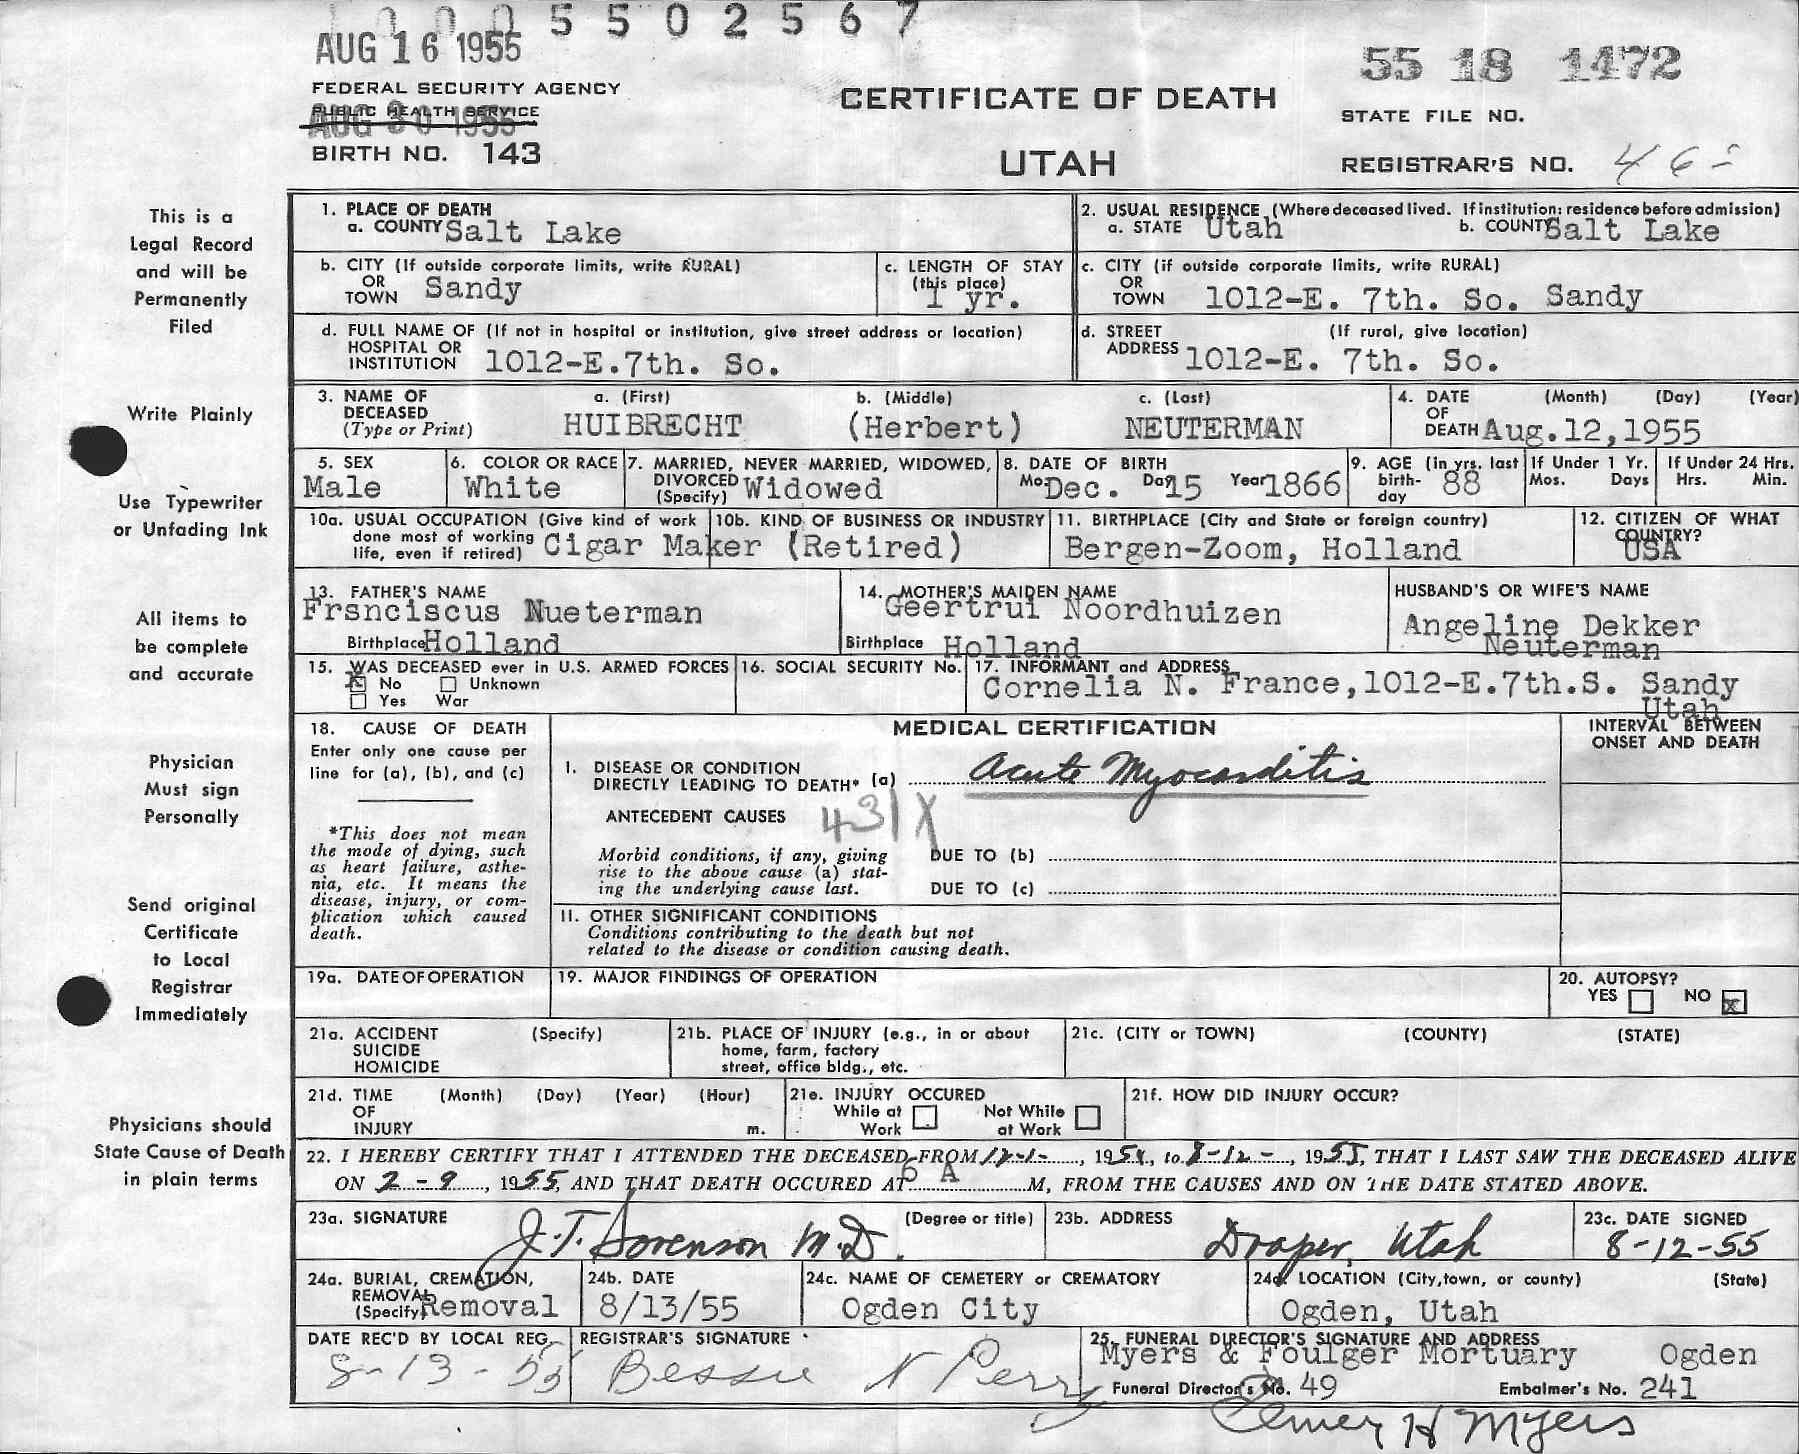 1 0 0 0 5 5 0 2 5 6 7
AUG 16 1955
55 18 1472
FEDERAL SECURITY AGENCY
PUBLIC HEALTH SERVICE
AUG 30 1955
CERTIFICATE OF DEATH
STATE FILE NO.
BIRTH NO. 143
UTAH
REGISTRAR'S NO. 46
This is a
Legal Record
and will be
Permanently
Filed
Write Plainly
Use Typewriter
or Unfading Ink
All items to
be complete
and accurate
Physician
Must sign
Personally
Send original
Certificate
to Local
Registrar
Immediately
Physicians should
State Cause of Death
in plain terms
1. PLACE OF DEATH
a. COUNTY Salt Lake
2. USUAL RESIDENCE (Where deceased lived. If institution: residence before admission)
a. STATE Utah b. COUNTY Salt Lake
b. CITY (If outside corporate limits, write RURAL)
OR
TOWN Sandy
c. LENGTH OF STAY
(this place)
1 yr.
c. CITY (if outside corporate limits, write RURAL)
OR
TOWN 1012-E. 7th. So. Sandy
d. FULL NAME OF (If not in hospital or institution, give street address or location)
HOSPITAL OR
INSTITUTION 1012-E.7th. So.
d. STREET (If rural, give location)
ADDRESS 1012-E. 7th. So.
3. NAME OF
DECEASED
(Type or Print)
a. (First)
HUIBRECHT
b. (Middle)
(Herbert)
c. (Last)
NEUTERMAN
4. DATE (Month) (Day) (Year)
OF
DEATH Aug.12,1955
5. SEX
Male
6. COLOR OR RACE
White
7. MARRIED, NEVER MARRIED, WIDOWED,
DIVORCED
(Specify) Widowed
8. DATE OF BIRTH
Mo. Dec. Da. 15 Year 1866
9. AGE (in yrs. last
birth-
day 88
If Under 1 Yr.
Mos. Days
If Under 24 Hrs.
Hrs. Min.
10a. USUAL OCCUPATION (Give kind of work
done most of working
life, even if retired) Cigar Maker (Retired)
10b. KIND OF BUSINESS OR INDUSTRY
11. BIRTHPLACE (City and State or foreign country)
Bergen-Zoom, Holland
12. CITIZEN OF WHAT
COUNTRY?
USA
13. FATHER'S NAME
Frsnciscus Nueterman
Birthplace Holland
14. MOTHER'S MAIDEN NAME
Geertrui Noordhuizen
Birthplace Holland
HUSBAND'S OR WIFE'S NAME
Angeline Dekker
Neuterman
15. WAS DECEASED ever in U.S. ARMED FORCES
X No Unknown
Yes War
16. SOCIAL SECURITY No.
17. INFORMANT and ADDRESS
Cornelia N. France,1012-E.7th.S. Sandy
Utah
18. CAUSE OF DEATH
Enter only one cause per
line for (a), (b), and (c)
*This does not mean
the mode of dying, such
as heart failure, asthe-
nia, etc. It means the
disease, injury, or com-
plication which caused
death.
MEDICAL CERTIFICATION
INTERVAL BETWEEN
ONSET AND DEATH
I. DISEASE OR CONDITION
DIRECTLY LEADING TO DEATH* (a) Acute Myocarditis
ANTECEDENT CAUSES 431X
Morbid conditions, if any, giving
rise to the above cause (a) stat-
ing the underlying cause last.
DUE TO (b)
DUE TO (c)
II. OTHER SIGNIFICANT CONDITIONS
Conditions contributing to the death but not
related to the disease or condition causing death.
19a. DATE OF OPERATION
19. MAJOR FINDINGS OF OPERATION
20. AUTOPSY?
YES NO X
21a. ACCIDENT (Specify)
SUICIDE
HOMICIDE
21b. PLACE OF INJURY (e.g., in or about
home, farm, factory
street, office bldg., etc.
21c. (CITY or TOWN) (COUNTY) (STATE)
21d. TIME (Month) (Day) (Year) (Hour)
OF
INJURY m.
21e. INJURY OCCURED
While at Not While
Work at Work
21f. HOW DID INJURY OCCUR?
22. I HEREBY CERTIFY THAT I ATTENDED THE DECEASED FROM 12-1-, 1954, to 8-12-, 1955, THAT I LAST SAW THE DECEASED ALIVE
ON 2-9, 1955, AND THAT DEATH OCCURED AT 6 A M, FROM THE CAUSES AND ON THE DATE STATED ABOVE.
23a. SIGNATURE (Degree or title)
J.T. Sorenson M.D.
23b. ADDRESS
Draper, Utah
23c. DATE SIGNED
8-12-55
24a. BURIAL, CREMATION,
REMOVAL
(Specify) Removal
24b. DATE
8/13/55
24c. NAME OF CEMETERY or CREMATORY
Ogden City
24d. LOCATION (City, town, or county) (State)
Ogden, Utah
DATE REC'D BY LOCAL REG.
8-13-55
REGISTRAR'S SIGNATURE
Bessie N Perry
25. FUNERAL DIRECTOR'S SIGNATURE AND ADDRESS
Myers & Foulger Mortuary Ogden
Funeral Director's No. 49 Embalmer's No. 241
Elmer H Myers